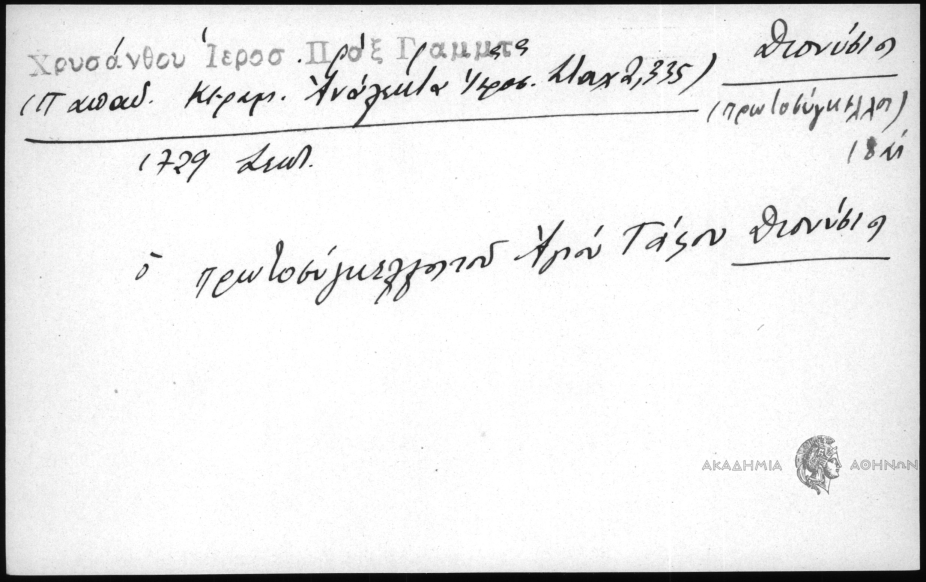 Χρυσάνθου Ἱεροσ. Πρᾶξ Γραμμτ
Διονύσιος
(Παπαδ. Κεραμ. Ἀνάλεκτα Ἱερος. Σταχ 2,335)
(πρωτοσύγκελλος)
1729 Σεπτ.
18 αἰ
ὁ πρωτοσύγκελλος τοῦ Ἁγίου Τάφου Διονύσιος
ΑΚΑΔΗΜΙΑ ΑΘΗΝΩΝ